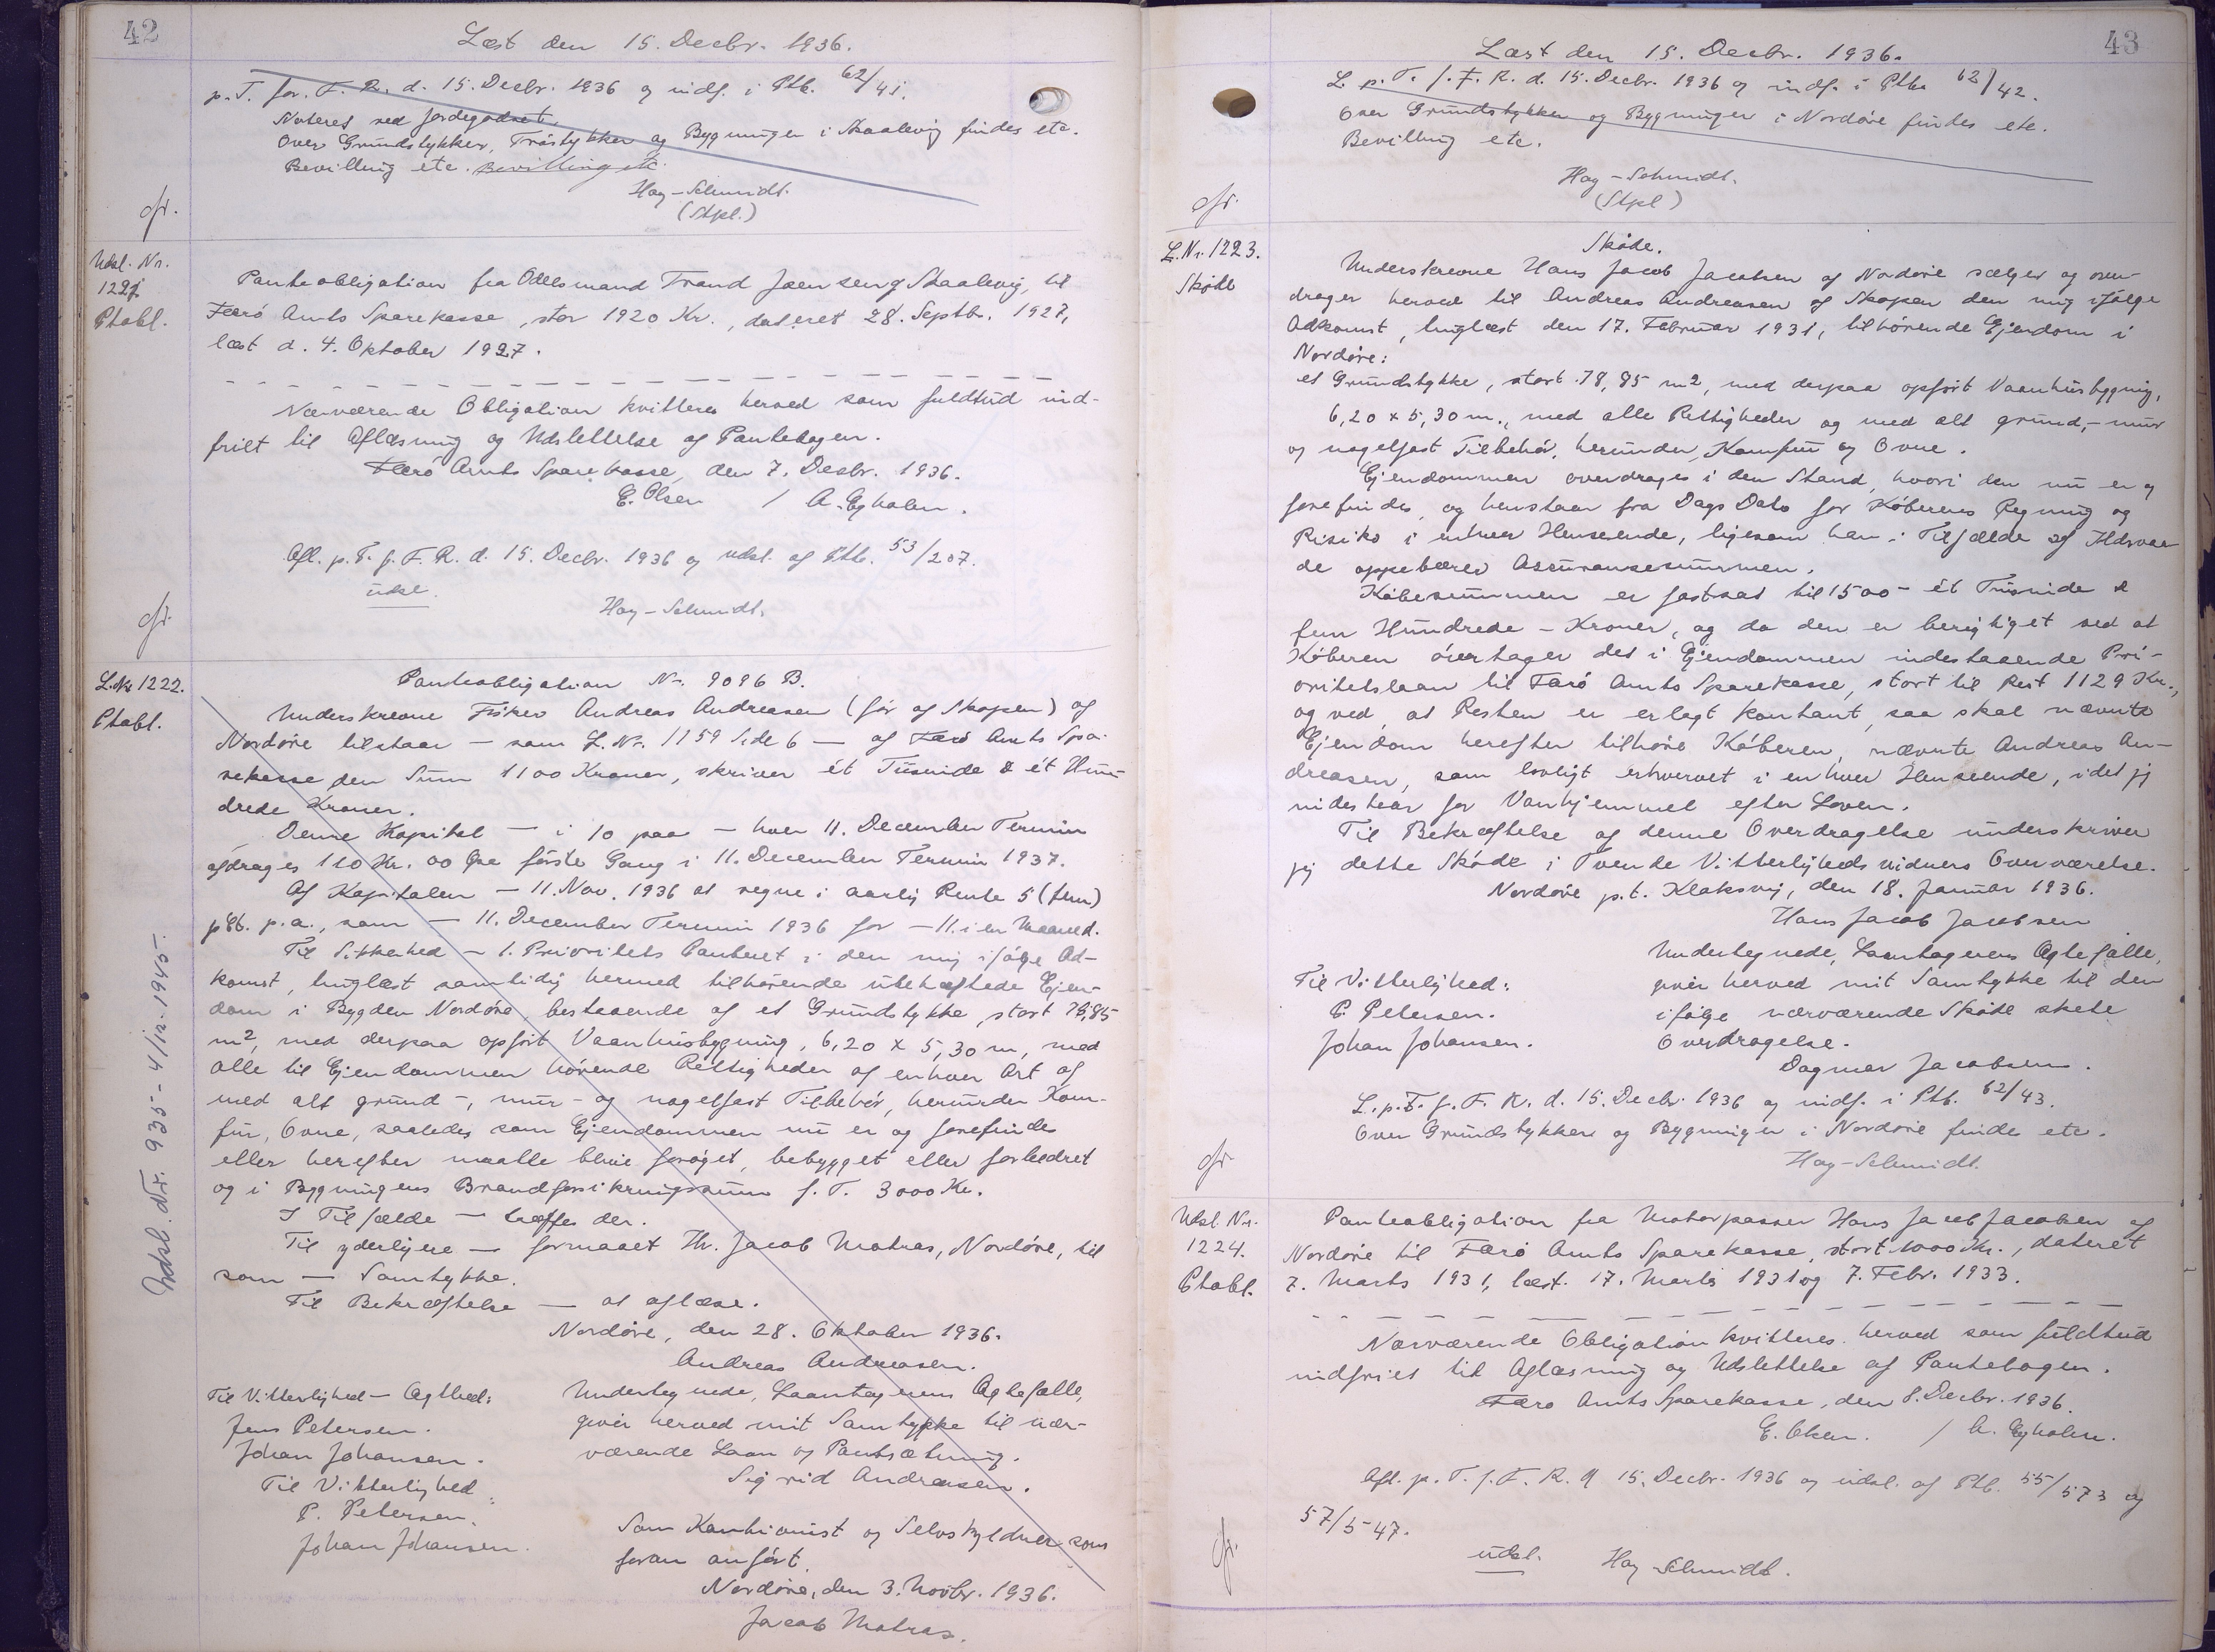 42
Læst den 15. Decbr. 1936.
p. T. for. F. R. d. 15. Decbr. 1936 og indf. i Ptb. 62/41.
Noteres ved Jordegodset.
Over Grundstykker, Trästykker og Bygninger i Skaalevig findes etc.
Bevilling etc. Bevilling etc.
Hay-Schmidt.
(Stpl.)
Udsl. Nr.
1221
Ptobl.
Panteobligation fra Odelsmand Trand Joensen af Skaalevig, til
Færö Amts Sparekasse, stor 1920 Kr., dateret 28. Septb. 1927,
læst d. 4. Oktober 1927.
Nærværende Obligation kvitteres herved som fuldtud ind-
friet til Aflæsning og Udslettelse af Pantebogen.
Færö Amts Sparekasse, den 7. Decbr. 1936.
E. Olsen / A. Egholm.
Afl. p. T. f. F. R. d. 15. Decbr. 1936 og udsl. af Ptb. 53/207.
udsl.
Hay-Schmidt.
L. Nr 1222.
Ptobl.
Udsl. Nr. 935 - 4/12-1945.
Panteobligation Nr. 9096 B.
Underskrevne Fisker Andreas Andreasen (før af Skopen) af
Nordöre tilstaar — som L. Nr. 1159 Side 6 — af Færö Amts Spa-
rekasse den Sum 1100 Kroner, skriver ét Tusinde & ét Hun-
drede Kroner.
Denne Kapital — i 10 paa — hver 11. December Termin
afdrages 110 Kr. 00 Øre første Gang i 11. December Termin 1937.
Af Kapitalen — 11. Nov. 1936 at regne i aarlig Rente 5 (fem)
pCt. p.a., som — 11. December Termin 1936 for — 11. i en Maaned.
Til Sikkerhed — 1. Prioritets Panteret i den mig ifölge Ad-
komst, tinglæst samtidig hermed tilhörende ubehæftede Ejen-
dom i Bygden Nordöre, bestaaende af et Grundstykke, stort 78,85
m2, med derpaa opfört Vaanhusbygning, 6,20 x 5,30 m, med
alle til Ejendommen hörende Rettigheder af enhver Art og
med alt grund-, mur- og nagelfast Tilbehör, herunder Kom-
fur, Ovne, saaledes som Ejendommen nu er og forefindes
eller herefter maatte blive foröget, bebygget eller forbedret
og i Bygningens Brandforsikringssum f. T. 3000 Kr.
I Tilfælde — træffes der.
Til yderligere — formaaet Hr. Jacob Matras, Nordöre, til
som — Samtykke.
Til Bekræftelse — at aflæse.
Nordöre, den 28. Oktober 1936.
Andreas Andreasen.
Til Vitterlighed — Agthed:
Jens Petersen.
Johan Johansen.
Til Vitterlighed:
P. Petersen.
Johan Johansen.
Undertegnede, Laantagerens Ægtefælle,
giver herved mit Samtykke til nær-
værende Laan og Pantsætning.
Sigrid Andreasen.
Som Kautionist og Selvskyldner som
foran anfört.
Nordöre, den 3. Novbr. 1936.
Jacob Matras.
43
Læst den 15. Decbr. 1936.
L. p. T. f. F. R. d. 15. Decbr. 1936 og indf. i Ptb. 62/42.
Over Grundstykker og Bygninger i Nordöre findes etc.
Bevilling etc.
Hay-Schmidt.
(Stpl)
L. Nr. 1223.
Sköde
Sköde.
Underskrevne Hans Jacob Jacobsen af Nordöre sælger og over-
drager herved til Andreas Andreasen af Skopen den mig ifölge
Adkomst, tinglæst den 17. Februar 1931, tilhörende Ejendom i
Nordöre:
et Grundstykke, stort 78,85 m2, med derpaa opfört Vaanhusbygning,
6,20 x 5,30 m., med alle Rettigheder og med alt grund,- mur
og nagelfast Tilbehör, herunder, Komfur og Ovne.
Ejendommen overdrages i den Stand, hvori den nu er og
forefindes, og henstaar fra Dags Dato for Köberens Regning og
Risiko i enhver Henseende, ligesom han i Tilfælde af Ildsvaa-
de oppebærer Assurancesummen.
Köbesummen er fastsat til 1500 - ét Tusinde &
fem Hundrede - Kroner, og da den er berigtiget ved at
Köberen overtager det i Ejendommen indestaaende Pri-
oritetslaan til Færö Amts Sparekasse, stort til Rest 1129 Kr.,
og ved, at Resten er erlagt kontant, saa skal nævnte
Ejendom herefter tilhöre Köberen, nævnte Andreas An-
dreasen, som lovligt erhvervet i enhver Henseende, idet jeg
indestaar for Vanhjemmel efter Loven.
Til Bekræftelse af denne Overdragelse underskriver
jeg dette Sköde i Tvende Vitterligheds vidners Overværelse.
Nordöre p. t. Klaksvig, den 18. Januar 1936.
Hans Jacob Jacobsen
Til Vitterlighed:
P. Petersen.
Johan Johansen.
Undertegnede, Laantagerens Ægtefälle,
giver herved mit Samtykke til den
ifölge nærværende Sköde skete
Overdragelse.
Dagmar Jacobsen.
L. p. T. f. F. R. d. 15. Decbr. 1936 og indf. i Ptb. 62/43.
Over Grundstykker og Bygninger i Nordöre findes etc.
Hay-Schmidt.
Udsl. Nr.
1224.
Ptobl.
Panteobligation fra Motorpasser Hans Jacob Jacobsen af
Nordöre til Færö Amts Sparekasse, stort 1000 Kr., dateret
7. Marts 1931, læst. 17. Marts 1931 og 7. Febr. 1933.
Nærværende Obligation kvitteres herved som fuldtud
indfriet til Aflæsning og Udslettelse af Pantebogen.
Færö Amts Sparekasse, den 8. Decbr. 1936.
E. Olsen. / A. Egholm.
Afl. p. T. f. F. R. d 15. Decbr. 1936 og udsl. af Ptb. 55/573 og
57/547.
udsl. Hay-Schmidt.